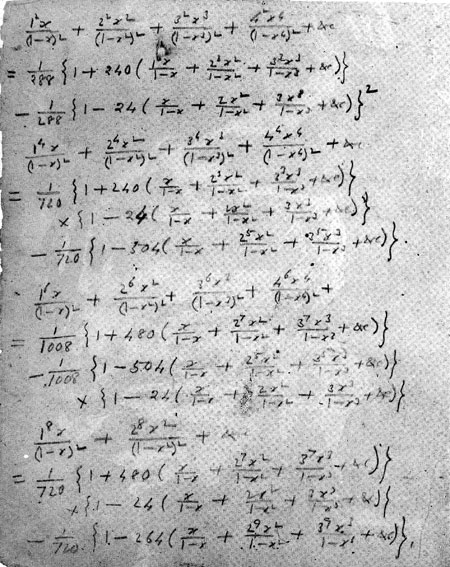 1²x/(1-x)² + 2²x²/(1-x²)² + 3²x³/(1-x³)² + 4²x⁴/(1-x⁴)² + &c
= 1/288 {1 + 240 (1³x/1-x + 2³x²/1-x² + 3³x³/1-x³ + &c)}
- 1/288 {1 - 24 (x/1-x + 2x²/1-x² + 3x³/1-x³ + &c)}²
1⁴x/(1-x)² + 2⁴x²/(1-x²)² + 3⁴x³/(1-x³)² + 4⁴x⁴/(1-x⁴)² + &c
= 1/720 {1 + 240 (x/1-x + 2³x²/1-x² + 3³x³/1-x³ + &c)}
× {1 - 24 (x/1-x + 2x²/1-x² + 3x³/1-x³ + &c)}
- 1/720 {1 - 504 (x/1-x + 2⁵x²/1-x² + 3⁵x³/1-x³ + &c)}.
1⁶x/(1-x)² + 2⁶x²/(1-x²)² + 3⁶x³/(1-x³)² + 4⁶x⁴/(1-x⁴)² +
= 1/1008 {1 + 480 (x/1-x + 2⁷x²/1-x² + 3⁷x³/1-x³ + &c)}
- 1/1008 {1 - 504 (x/1-x + 2⁵x²/1-x² + 3⁵x³/1-x³ + &c)}
× {1 - 24 (x/1-x + 2x²/1-x² + 3x³/1-x³ + &c)}
1⁸x/(1-x)² + 2⁸x²/(1-x²)² + &c
= 1/720 {1 + 480 (x/1-x + 2⁷x²/1-x² + 3⁷x³/1-x³ + &c)}
× {1 - 24 (x/1-x + 2x²/1-x² + 3x³/1-x³ + &c)}
- 1/720 {1 - 264 (x/1-x + 2⁹x²/1-x² + 3⁹x³/1-x³ + &c)}.